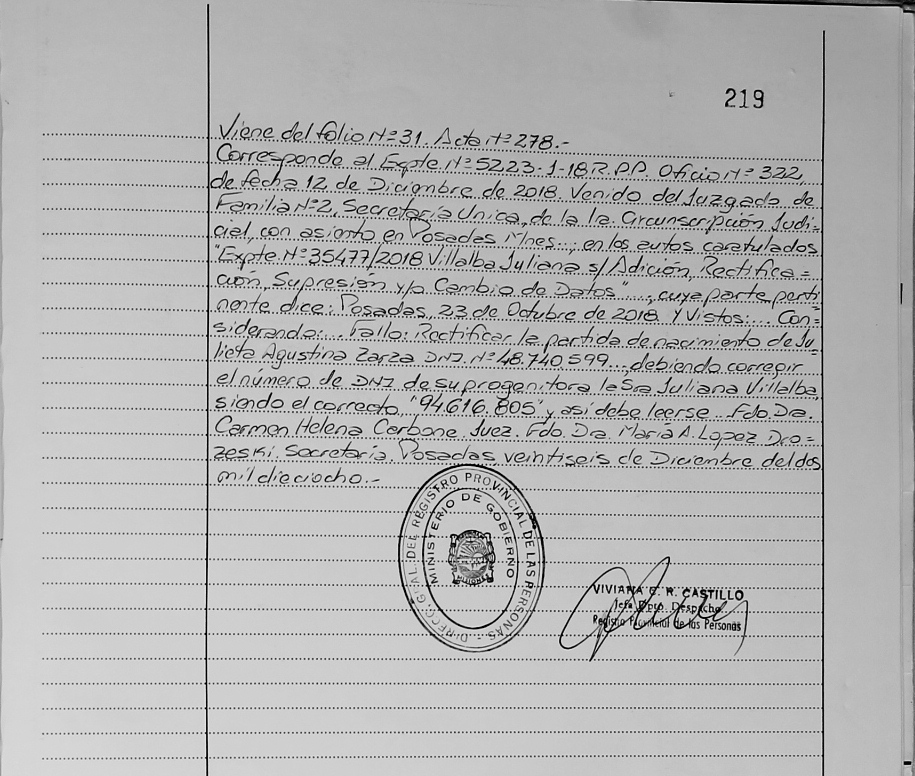 219
Viene del folio Nº 31. Acta Nº 278.-
Corresponde al Expte Nº 5223-1-18 R.P.P. Oficio Nº 322,
de fecha 12 de Diciembre de 2018. Venido del Juzgado de
Familia Nº 2, Secretaría Unica, de la 1a Circunscripción Judi=
cial, con asiento en Posadas Mnes..., en los autos caratulados
"Expte Nº 35477/2018 Villalba Juliana s/Adición, Rectifica=
ción, Supresión y/o Cambio de Datos"..., cuya parte perti
nente dice: Posadas, 23 de Octubre de 2018 Y Vistos:... Con=
siderando:... Fallo: Rectificar la partida de nacimiento de Ju
lieta Agustina Zarza DNI. Nº 48.740.599..., debiendo corregir
el número de DNI de su progenitora la Sra Juliana Villalba,
siendo el correcto "94.616.805" y así debe leerse... Fdo. Dra.
Carmen Helena Carbone Juez. Fdo. Dra. María A. Lopez Dro=
zeski. Secretaria. Posadas veintiseis de Diciembre del dos
mil dieciocho.-
DIRECC. G'AL. DEL REGISTRO PROVINCIAL DE LAS PERSONAS
MINISTERIO DE GOBIERNO
MISIONES
VIVIANA C. R. CASTILLO
Jefa Dpto. Despacho
Registro Provincial de las Personas